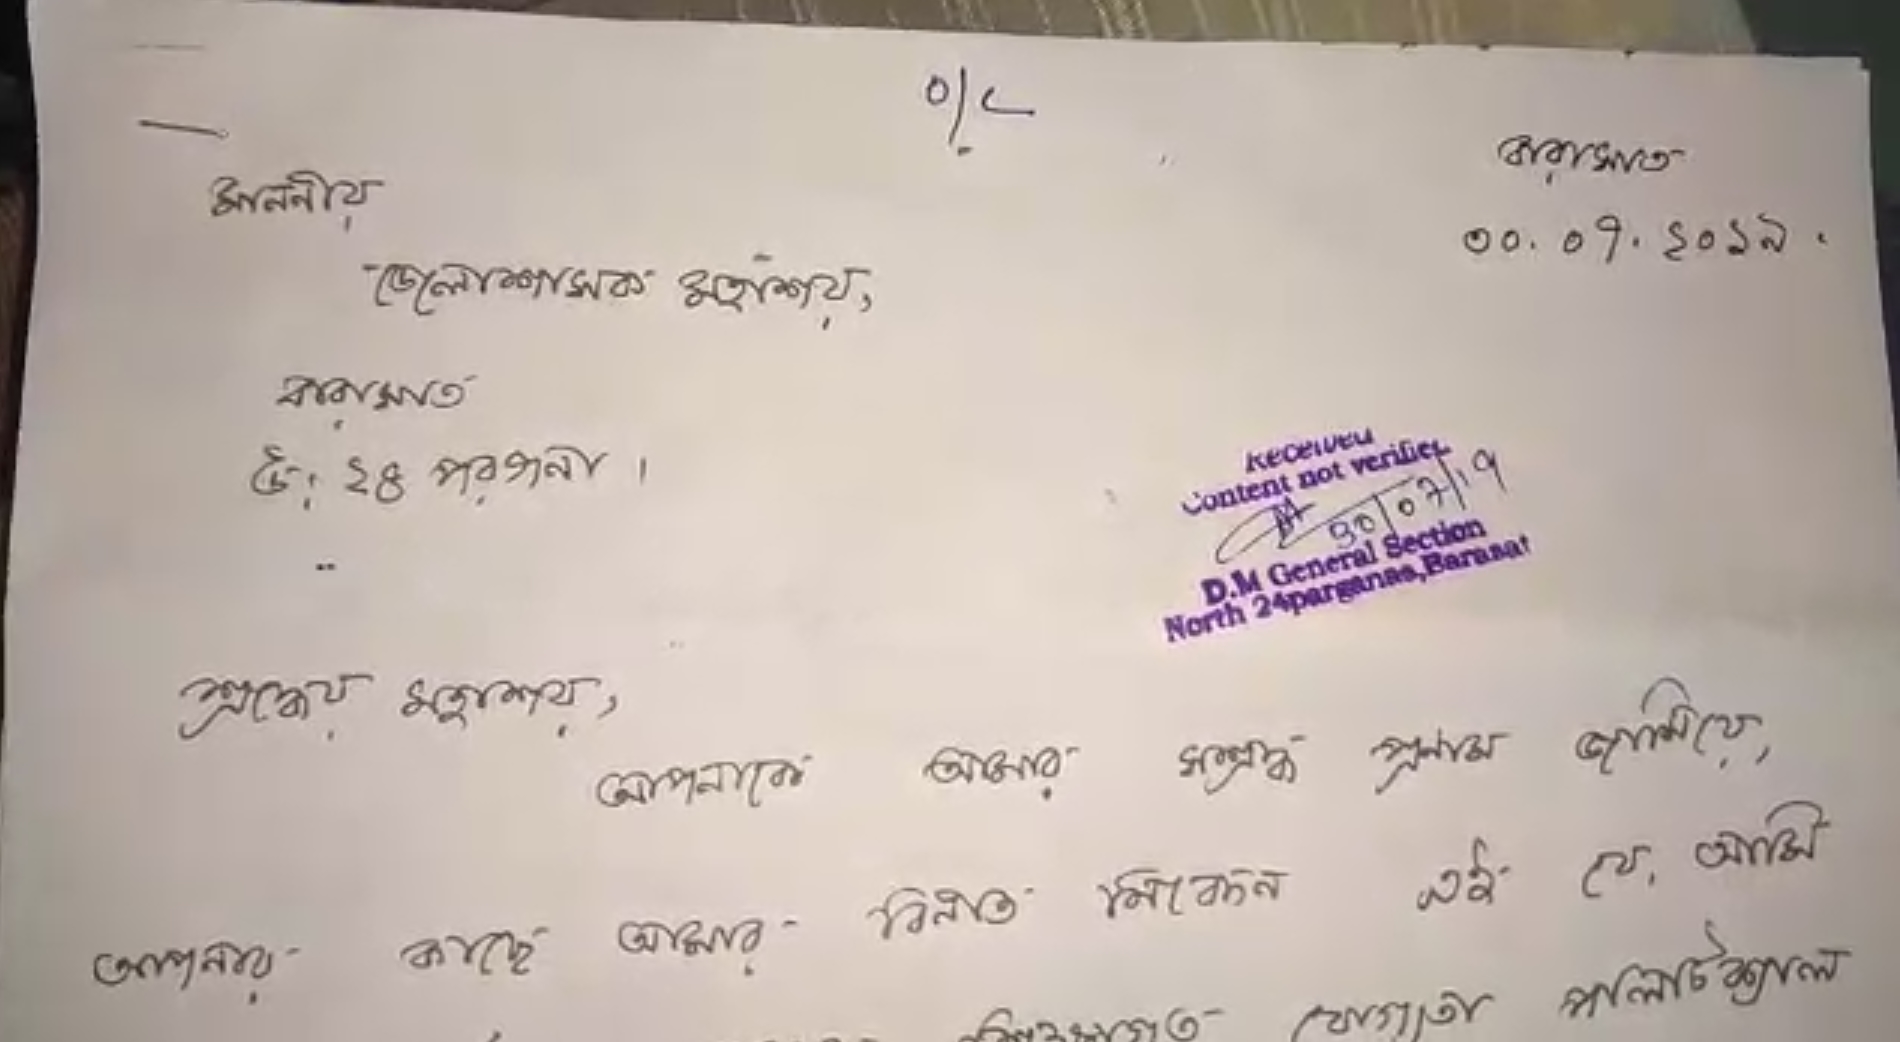 o/c
বারাসাত
৩০.০৭.২০১৯.
মাননীয়
জেলাশাসক মহাশয়,
বারাসাত
উঃ ২৪ পরগনা।
Received
Content not verified
30/07/19
D.M General Section
North 24parganas,Barasat
শ্রদ্ধেয় মহাশয়,
আপনাকে আমার সশ্রদ্ধ প্রনাম জানিয়ে,
আপনার কাছে আমার বিনীত নিবেদন এই যে, আমি
শিক্ষাগত যোগ্যতা পলিটিক্যাল